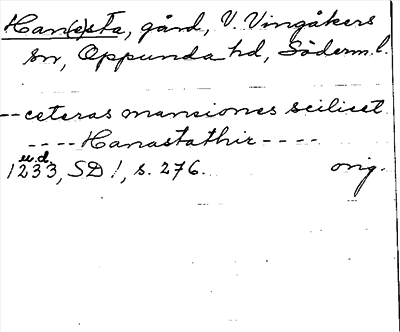 Han(e)sta, gård, V. Vingåkers
sn, Oppunda hd, Söderm. l.
-- ceteras mansiones scilicet
---- Hanastathir ----
u.d.
1233, SD 1, s. 276. orig.